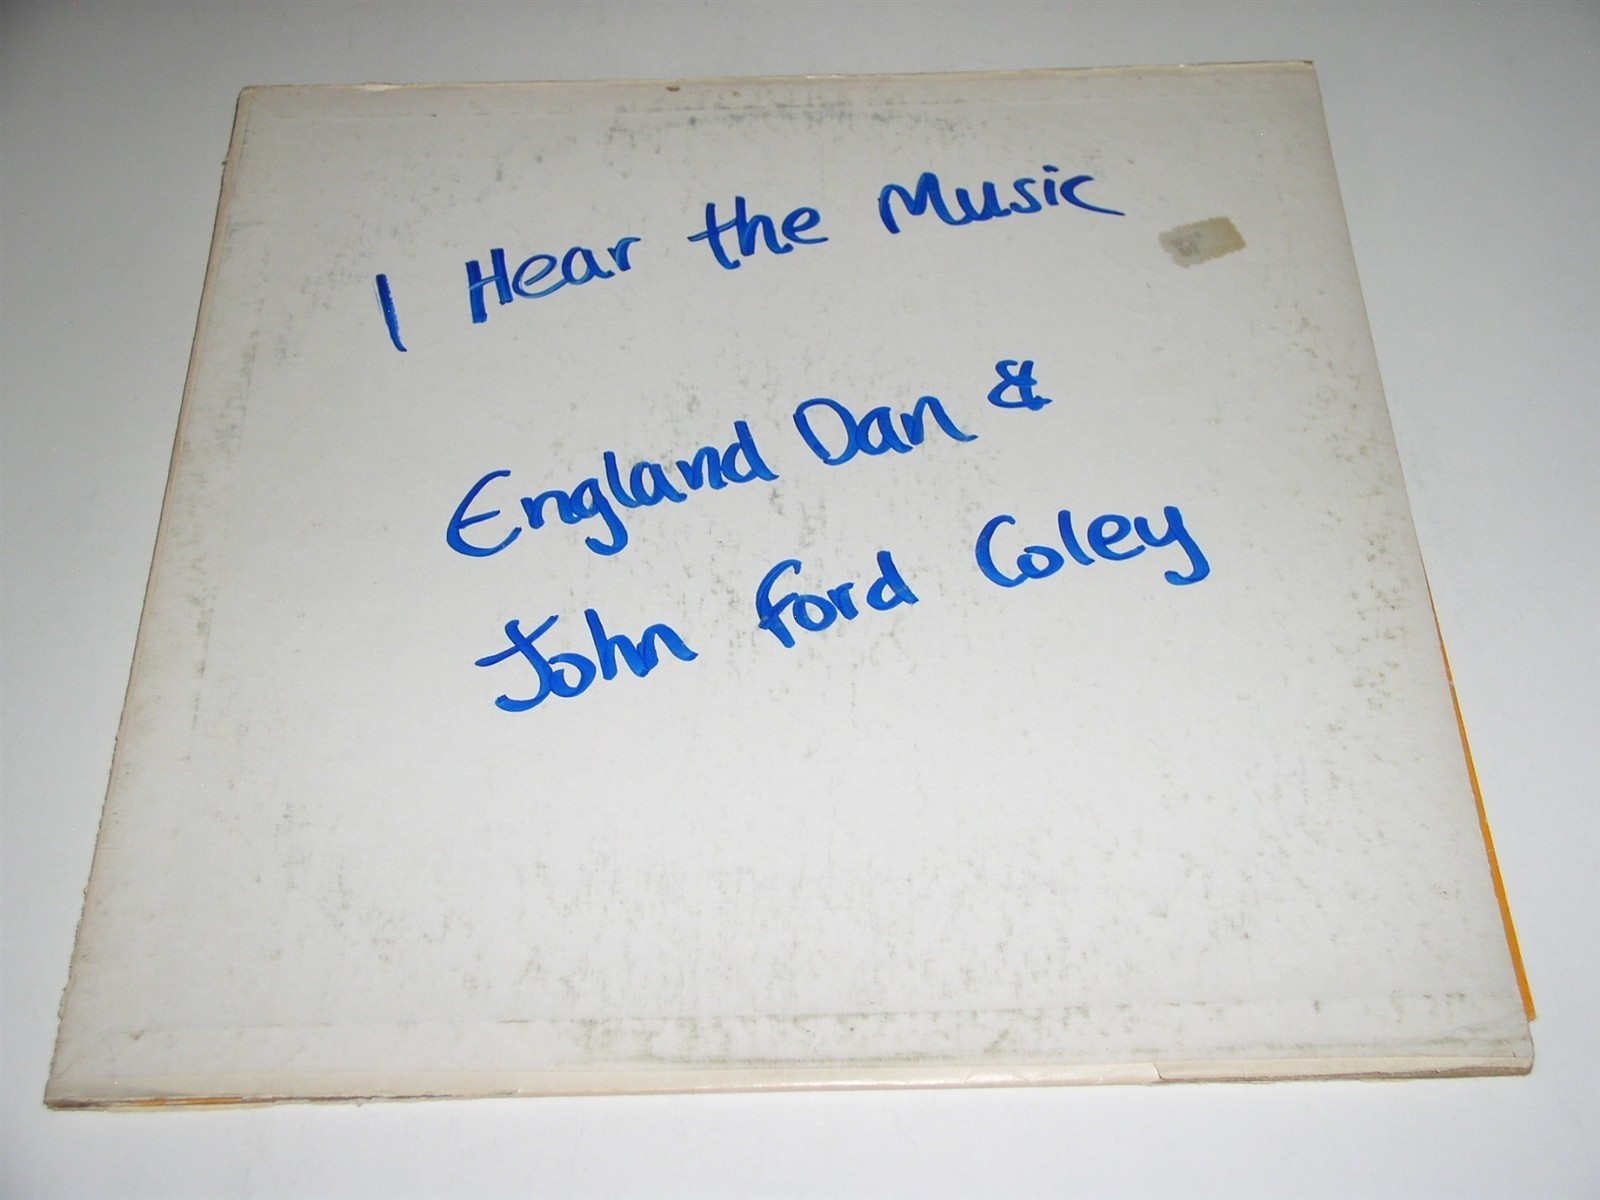 I Hear the Music
England Dan &
John Ford Coley